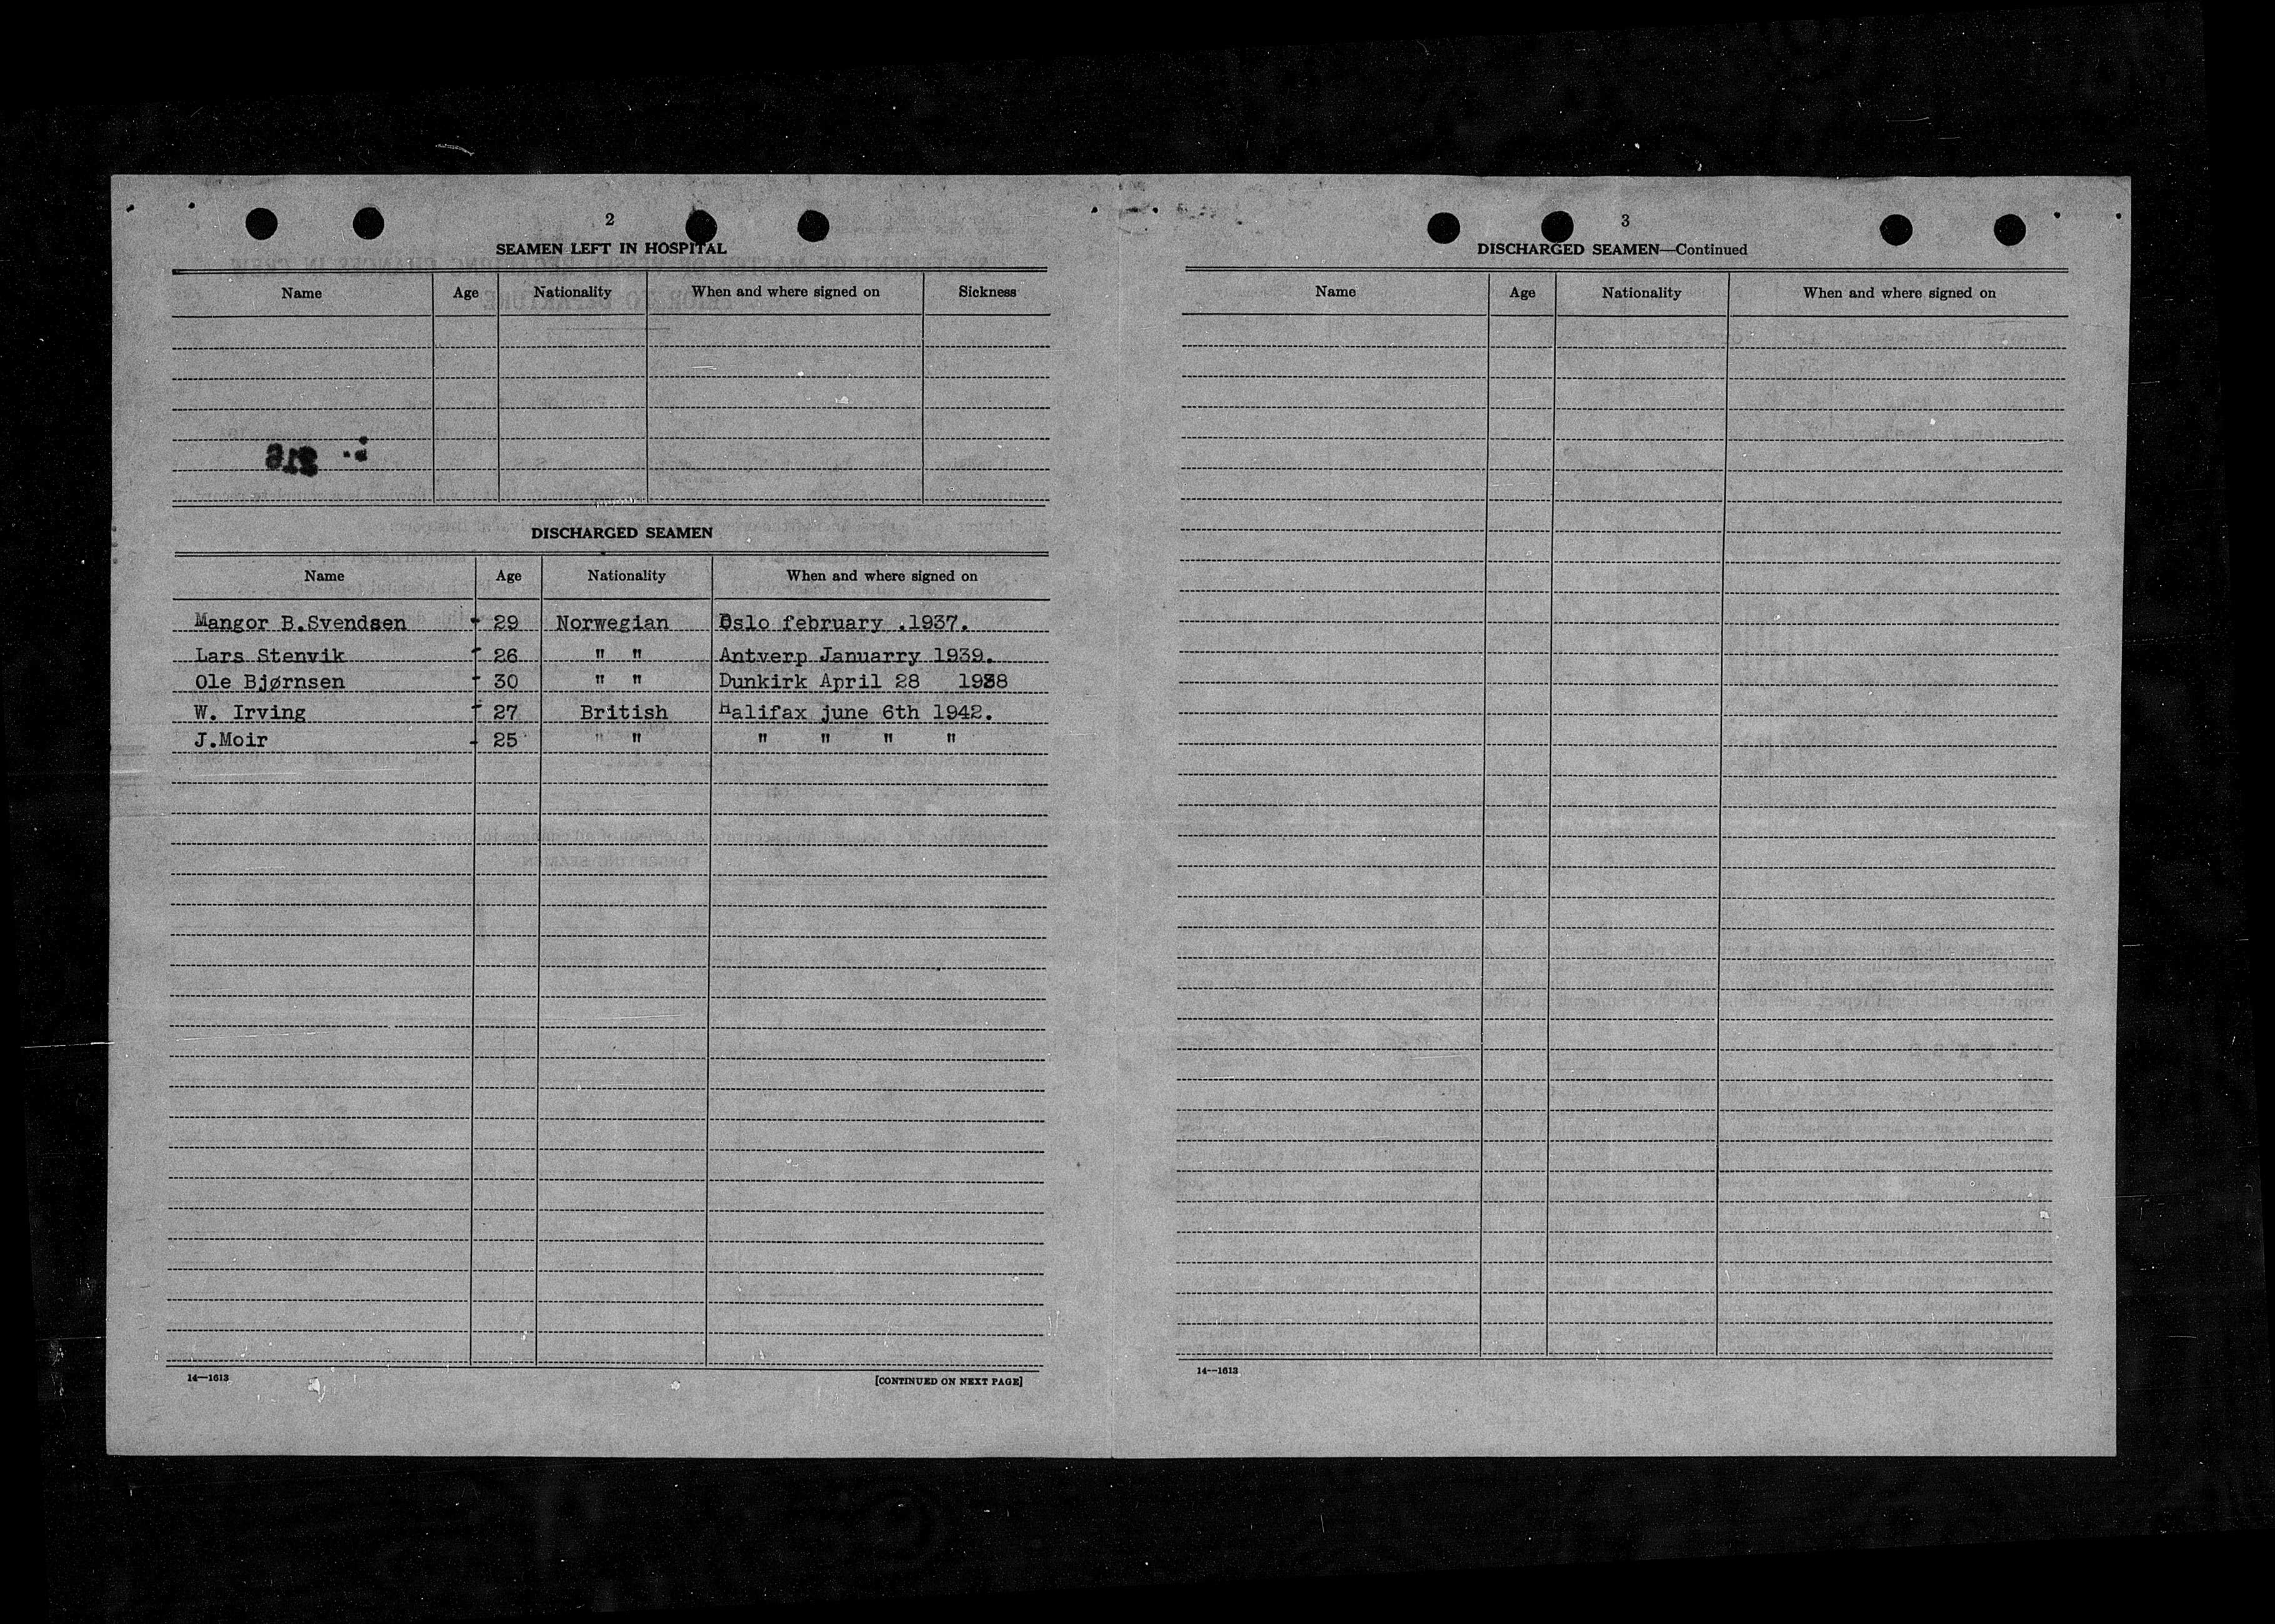 2
SEAMEN LEFT IN HOSPITAL
Name Age Nationality When and where signed on Sickness
DISCHARGED SEAMEN
Name Age Nationality When and where signed on
Mangor B.Svendsen - 29 Norwegian Oslo february .1937.
Lars Stenvik - 26 " " Antverp Januarry 1939.
Ole Bjørnsen - 30 " " Dunkirk April 28 1938
W. Irving - 27 British Halifax june 6th 1942.
J.Moir - 25 " " " " " "
14—1613 [CONTINUED ON NEXT PAGE]
3
DISCHARGED SEAMEN—Continued
Name Age Nationality When and where signed on
14—1613